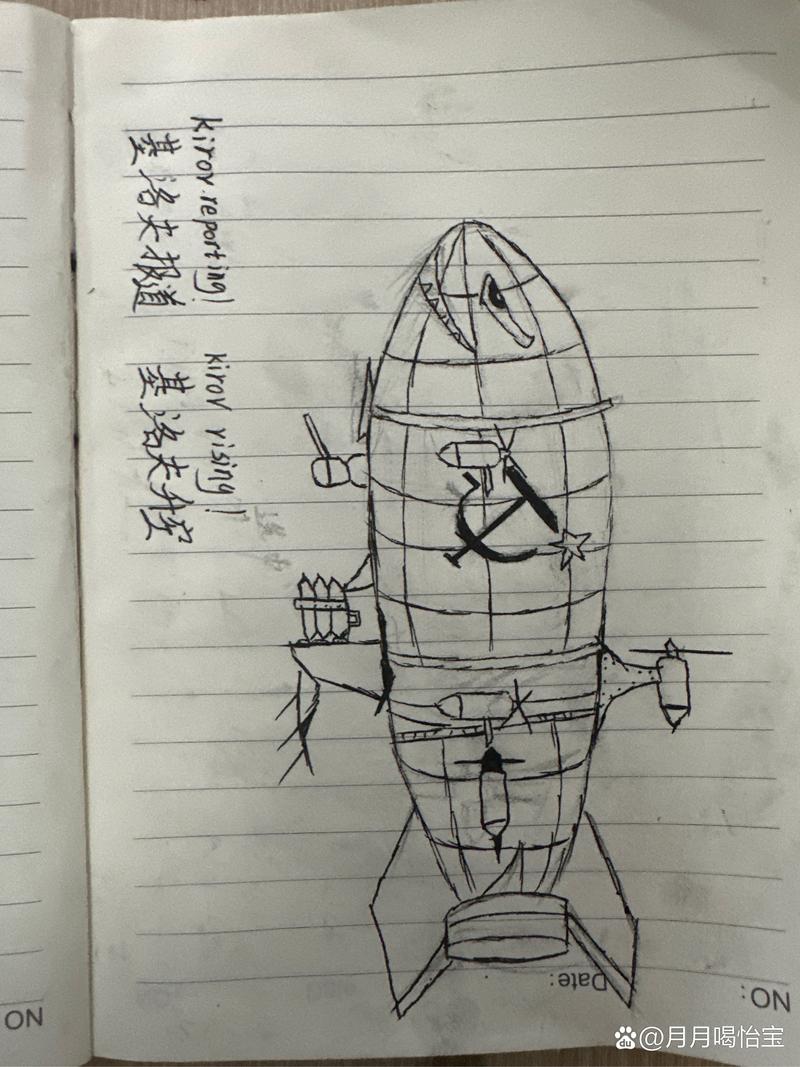 kirov reporting!
基洛夫报道
kirov rising!
基洛夫升空
Date:
NO:
NO
du @月月喝怡宝